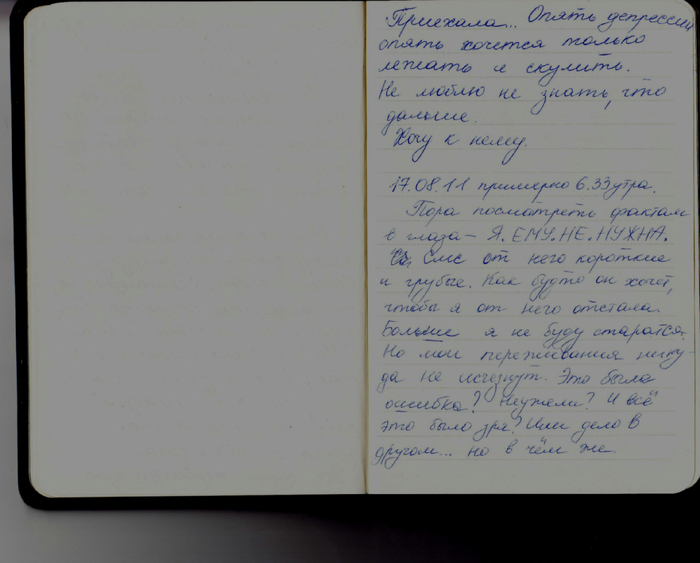 Приехала... Опять депрессии
опять хочется только
лежать и скулить.
Не люблю не знать, что
дальше.
Хочу к нему.
17.08.11 примерно 6.33 утра.
Пора посмотреть фактам
в глаза – Я. ЕМУ. НЕ. НУЖНА.
Смс от него короткие
и грубые. Как будто он хочет,
чтобы я от него отстала.
Больше я не буду старатся.
Но мои переживания нику-
да не исчезнут. Это была
ошибка? Неужели? И всё
это было зря? Или дело в
другом... но в чём же